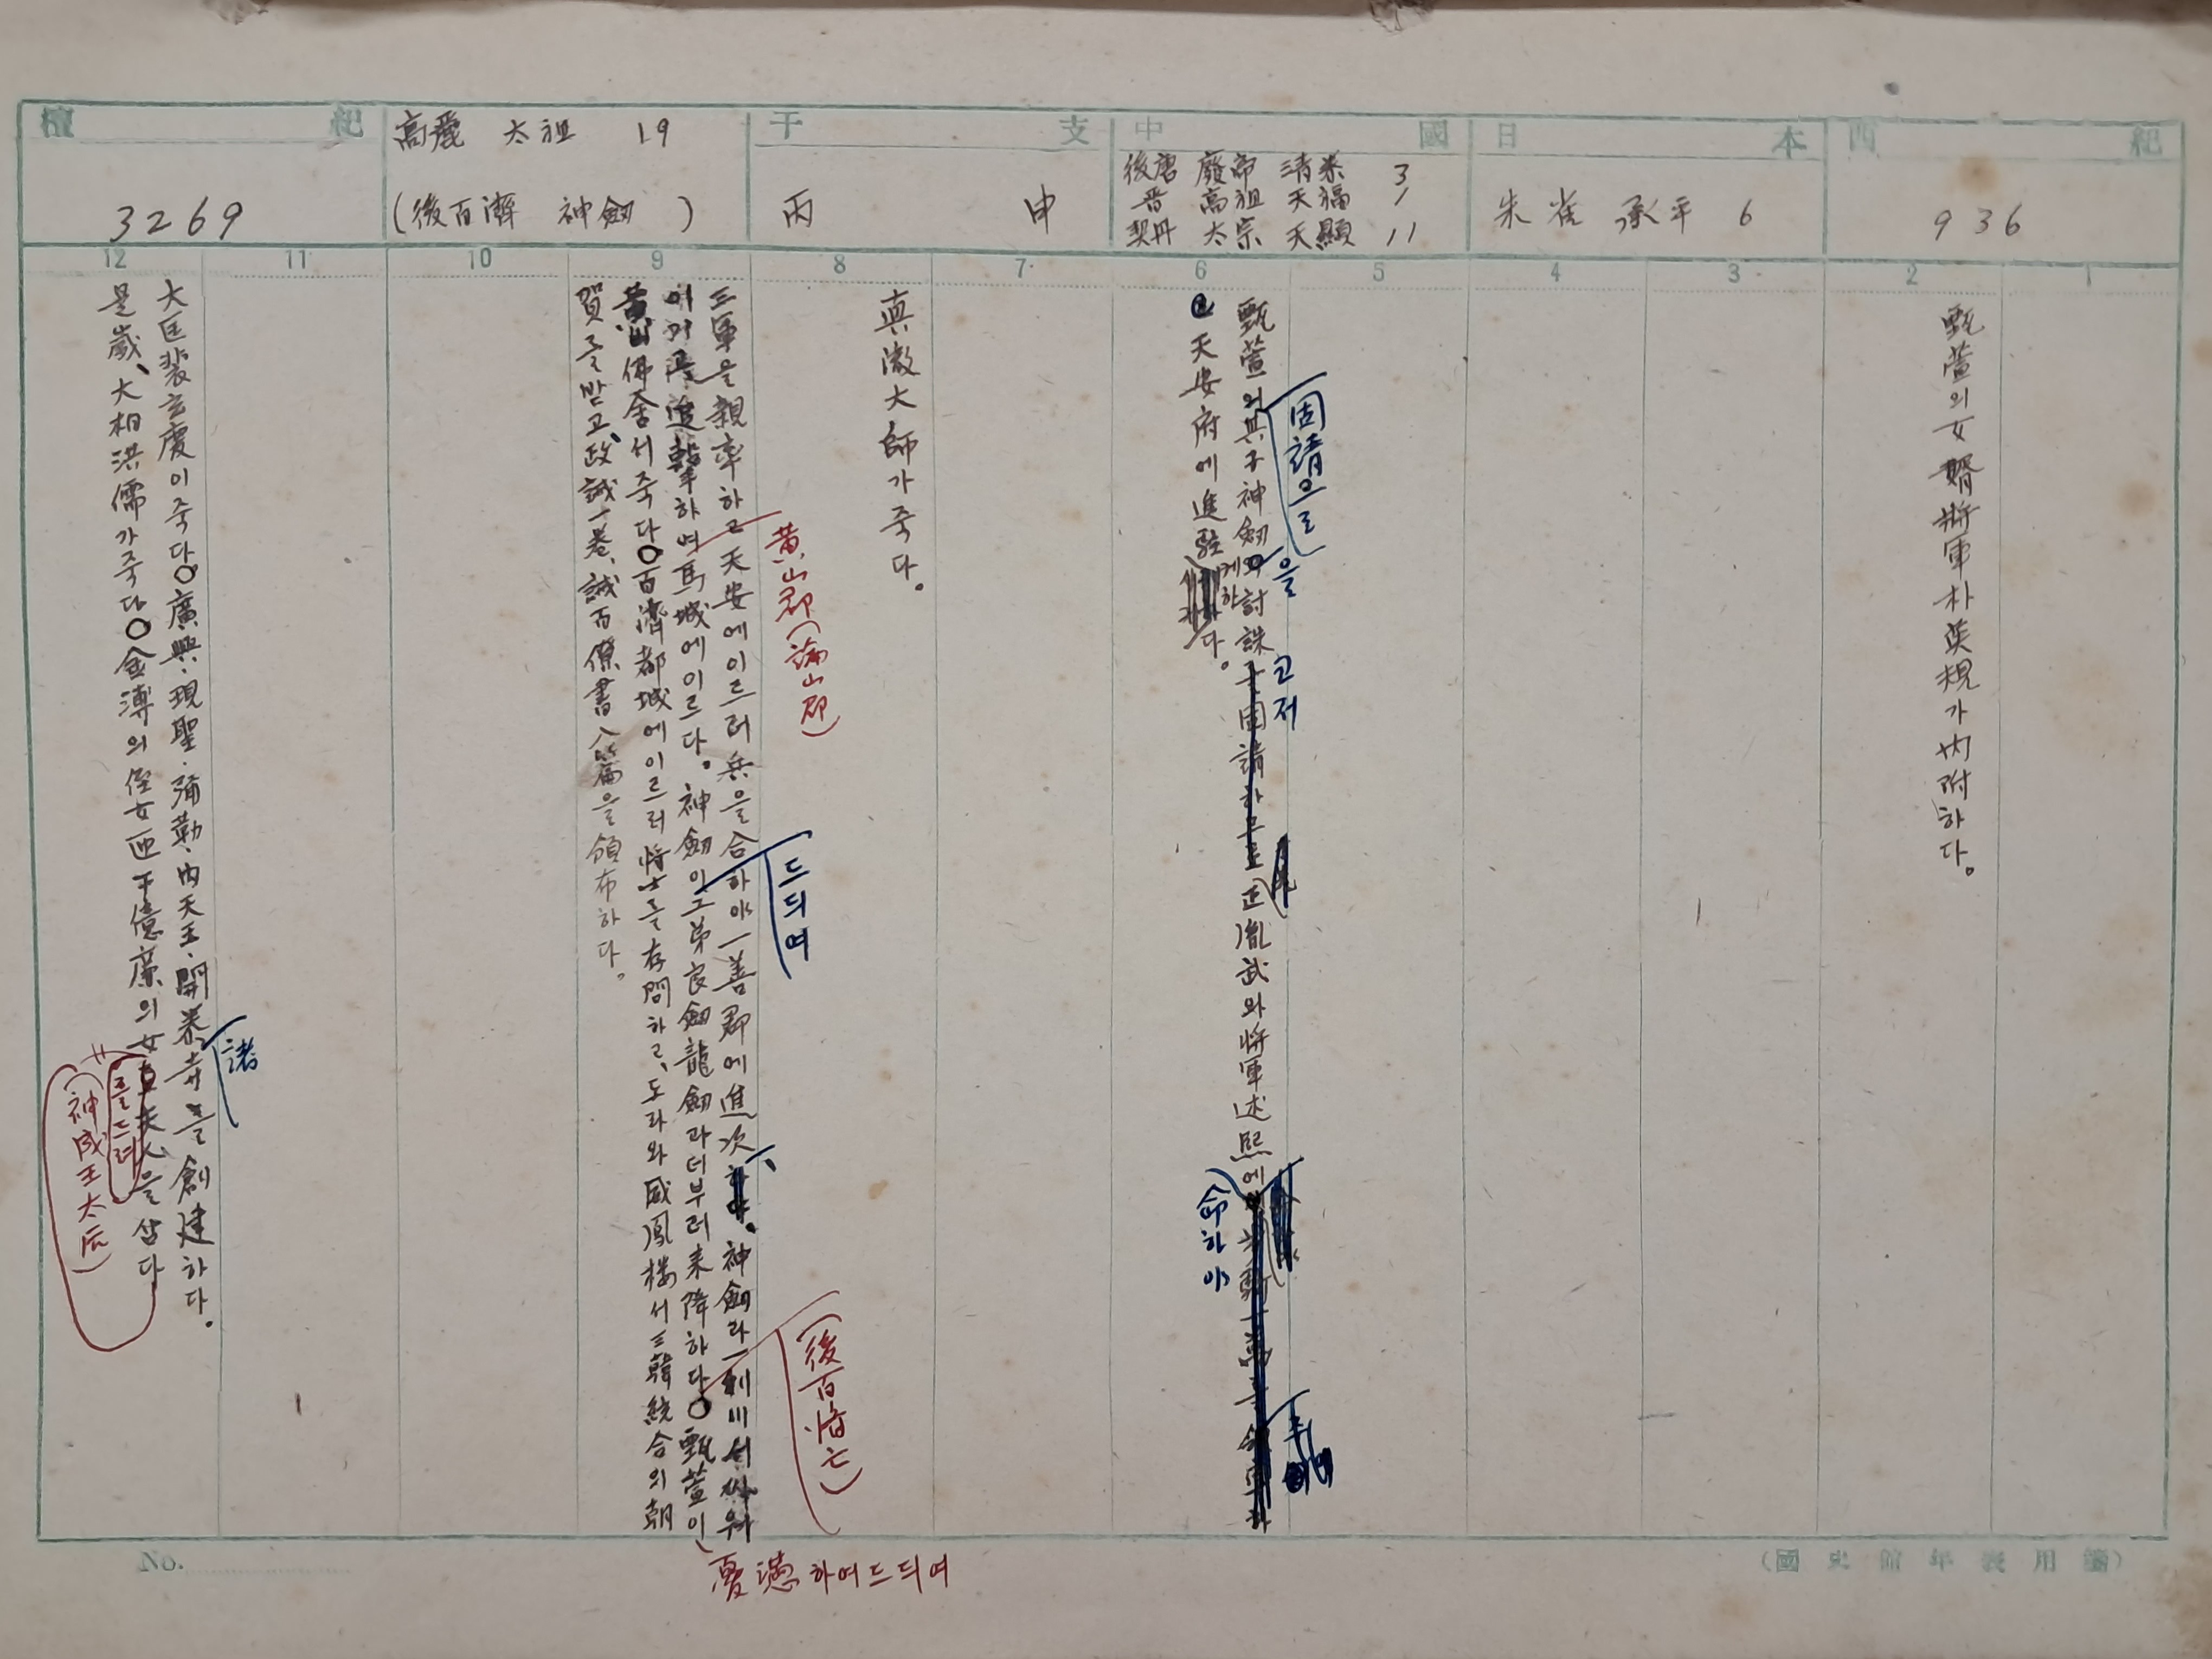 檀紀
3269
高麗 太祖 19
(後百濟 神劒 )
干支
丙申
中國
後唐 廢帝 淸泰 3
晋 高祖 天福 1
契丹 太宗 天顯 11
日本
朱雀 承平 6
西紀
936
12 11 10 9 8 7 6 5 4 3 2 1
甄萱의女婿將軍朴英規가內附하다。
甄萱의其子神劒討誅
固請으로
을
고저
正胤武와將軍述熙에
命하야
天安府에進駐
케하
다。
眞澈大師가죽다。
三軍을親率하고天安에이르러兵을合하야一善郡에進次
神劒과一利川서싸워
이기고進擊하여馬城에이르다。神劒이그弟良劒龍劒과데부러來降하다○甄萱이
黃山郡(論山郡)
드듸여
(後百濟亡)
憂懣하여드듸여
黃山佛舍서죽다○百濟都城에이르러將士를存問하고、도라와威鳳樓서三韓統合의朝
賀를받고、政誡一卷、誡百僚書八篇을領布하다。
大匡裴玄慶이죽다○廣興·現聖·彌勒·內天王·開泰寺를創建하다。
諸
是歲、大相洪儒가죽다○金溥의侄女匝干億廉의女
를드려
(神成王太后)
을삼다
No.
(國史館年表用箋)